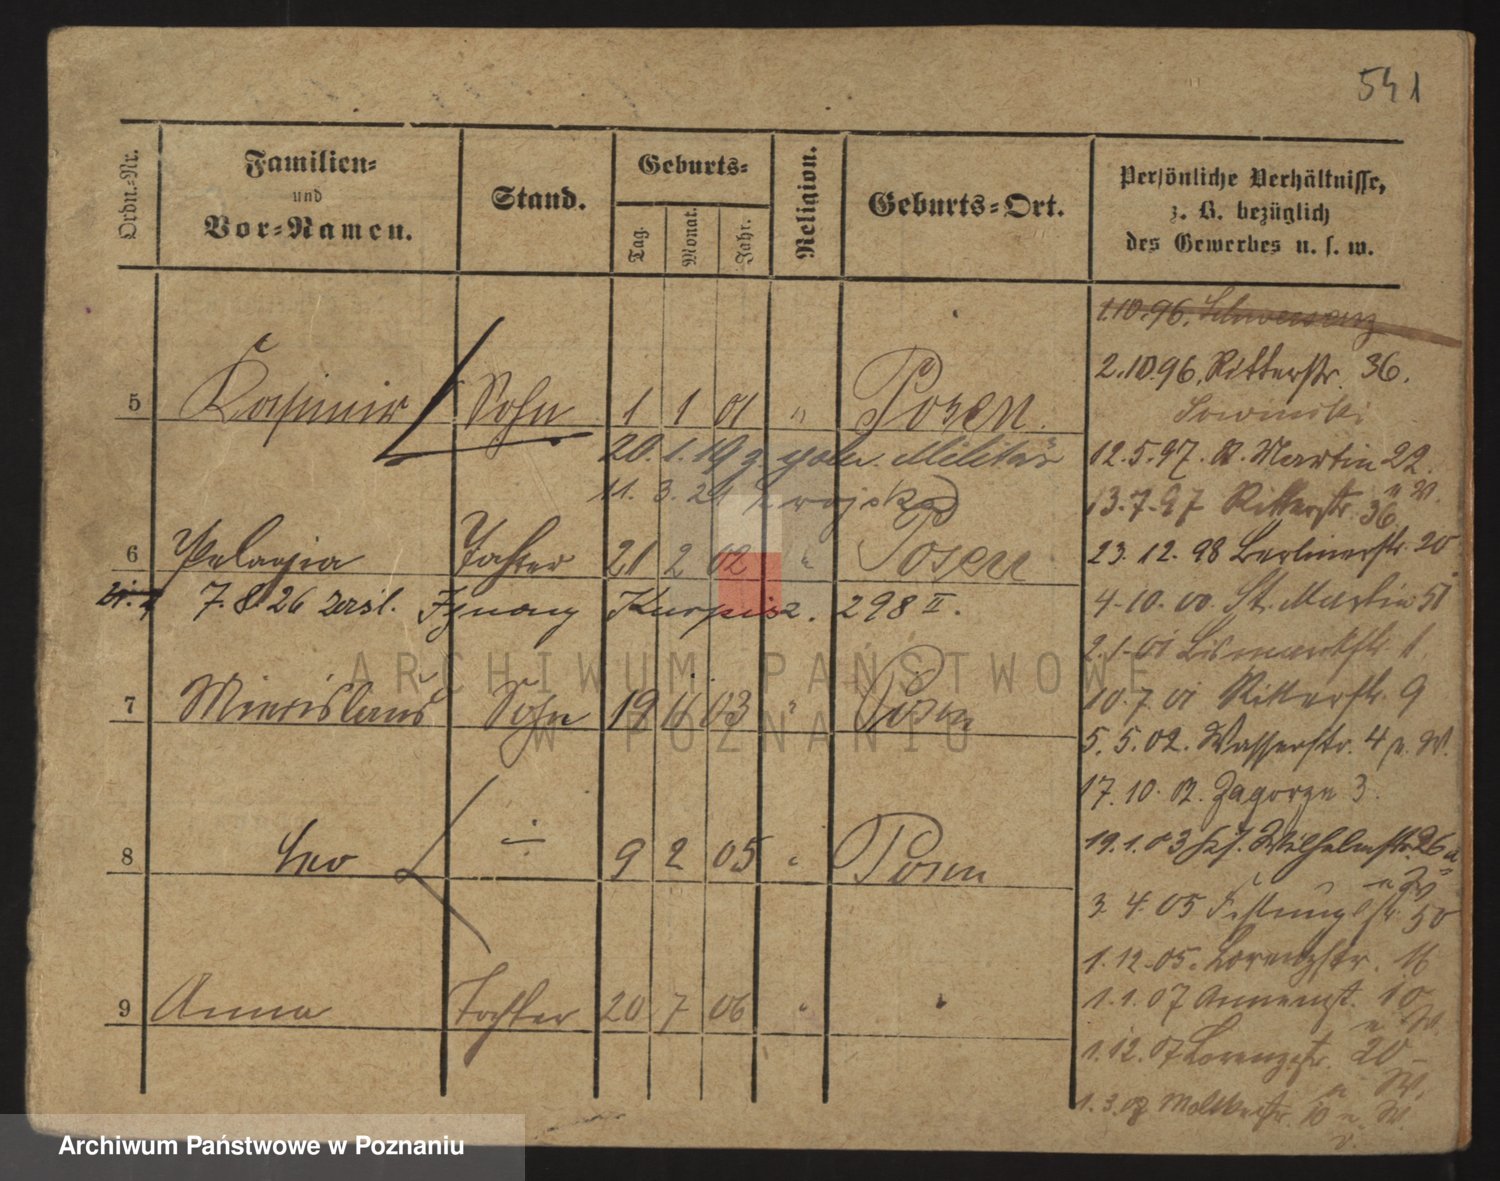 541
Ordn.-Nr.
Familien-
und
Vor-Namen.
Stand.
Geburts-
Tag.
Monat.
Jahr.
Religion.
Geburts-Ort.
Persönliche Verhältnisse,
z. B. bezüglich
des Gewerbes u. s. w.
1.10.96. Schwersenz
2.10.96. Ritterstr. 36.
5 Kasimir Sohn 1 1 01 " Posen.
20.1.19 Militär
12.5.97. St. Martin 22.
11.3.21 z wojska
13.7.97 Ritterstr. 36
6 Pelagia Tochter 21 2 02 " Posen
23.12.98 Berlinerstr. 20
7.8.26 Ignacy Kurpisz. 298 II.
4.10.00. St. Martin 51
2.1.01 Bismarckstr. 1.
7 Miecislaus Sohn 19 11 03 " Posen
10.7.01 Ritterstr. 9
5.5.02. Wasserstr. 4 W.
17.10.02. Zagorze 3.
8 Leo - 9 2 05 " Posen
19.1.03 Wilhelmstr. 26
3.4.05 Festungsstr. 50
1.12.05. Lorenzstr. 16
9 Anna Tochter 20 7 06 "
1.1.07 Annenst. 10
1.12.07 Lorenzstr. 20
1.3.08 Moltkestr. 10
ARCHIWUM PAŃSTWOWE
W POZNANIU
Archiwum Państwowe w Poznaniu